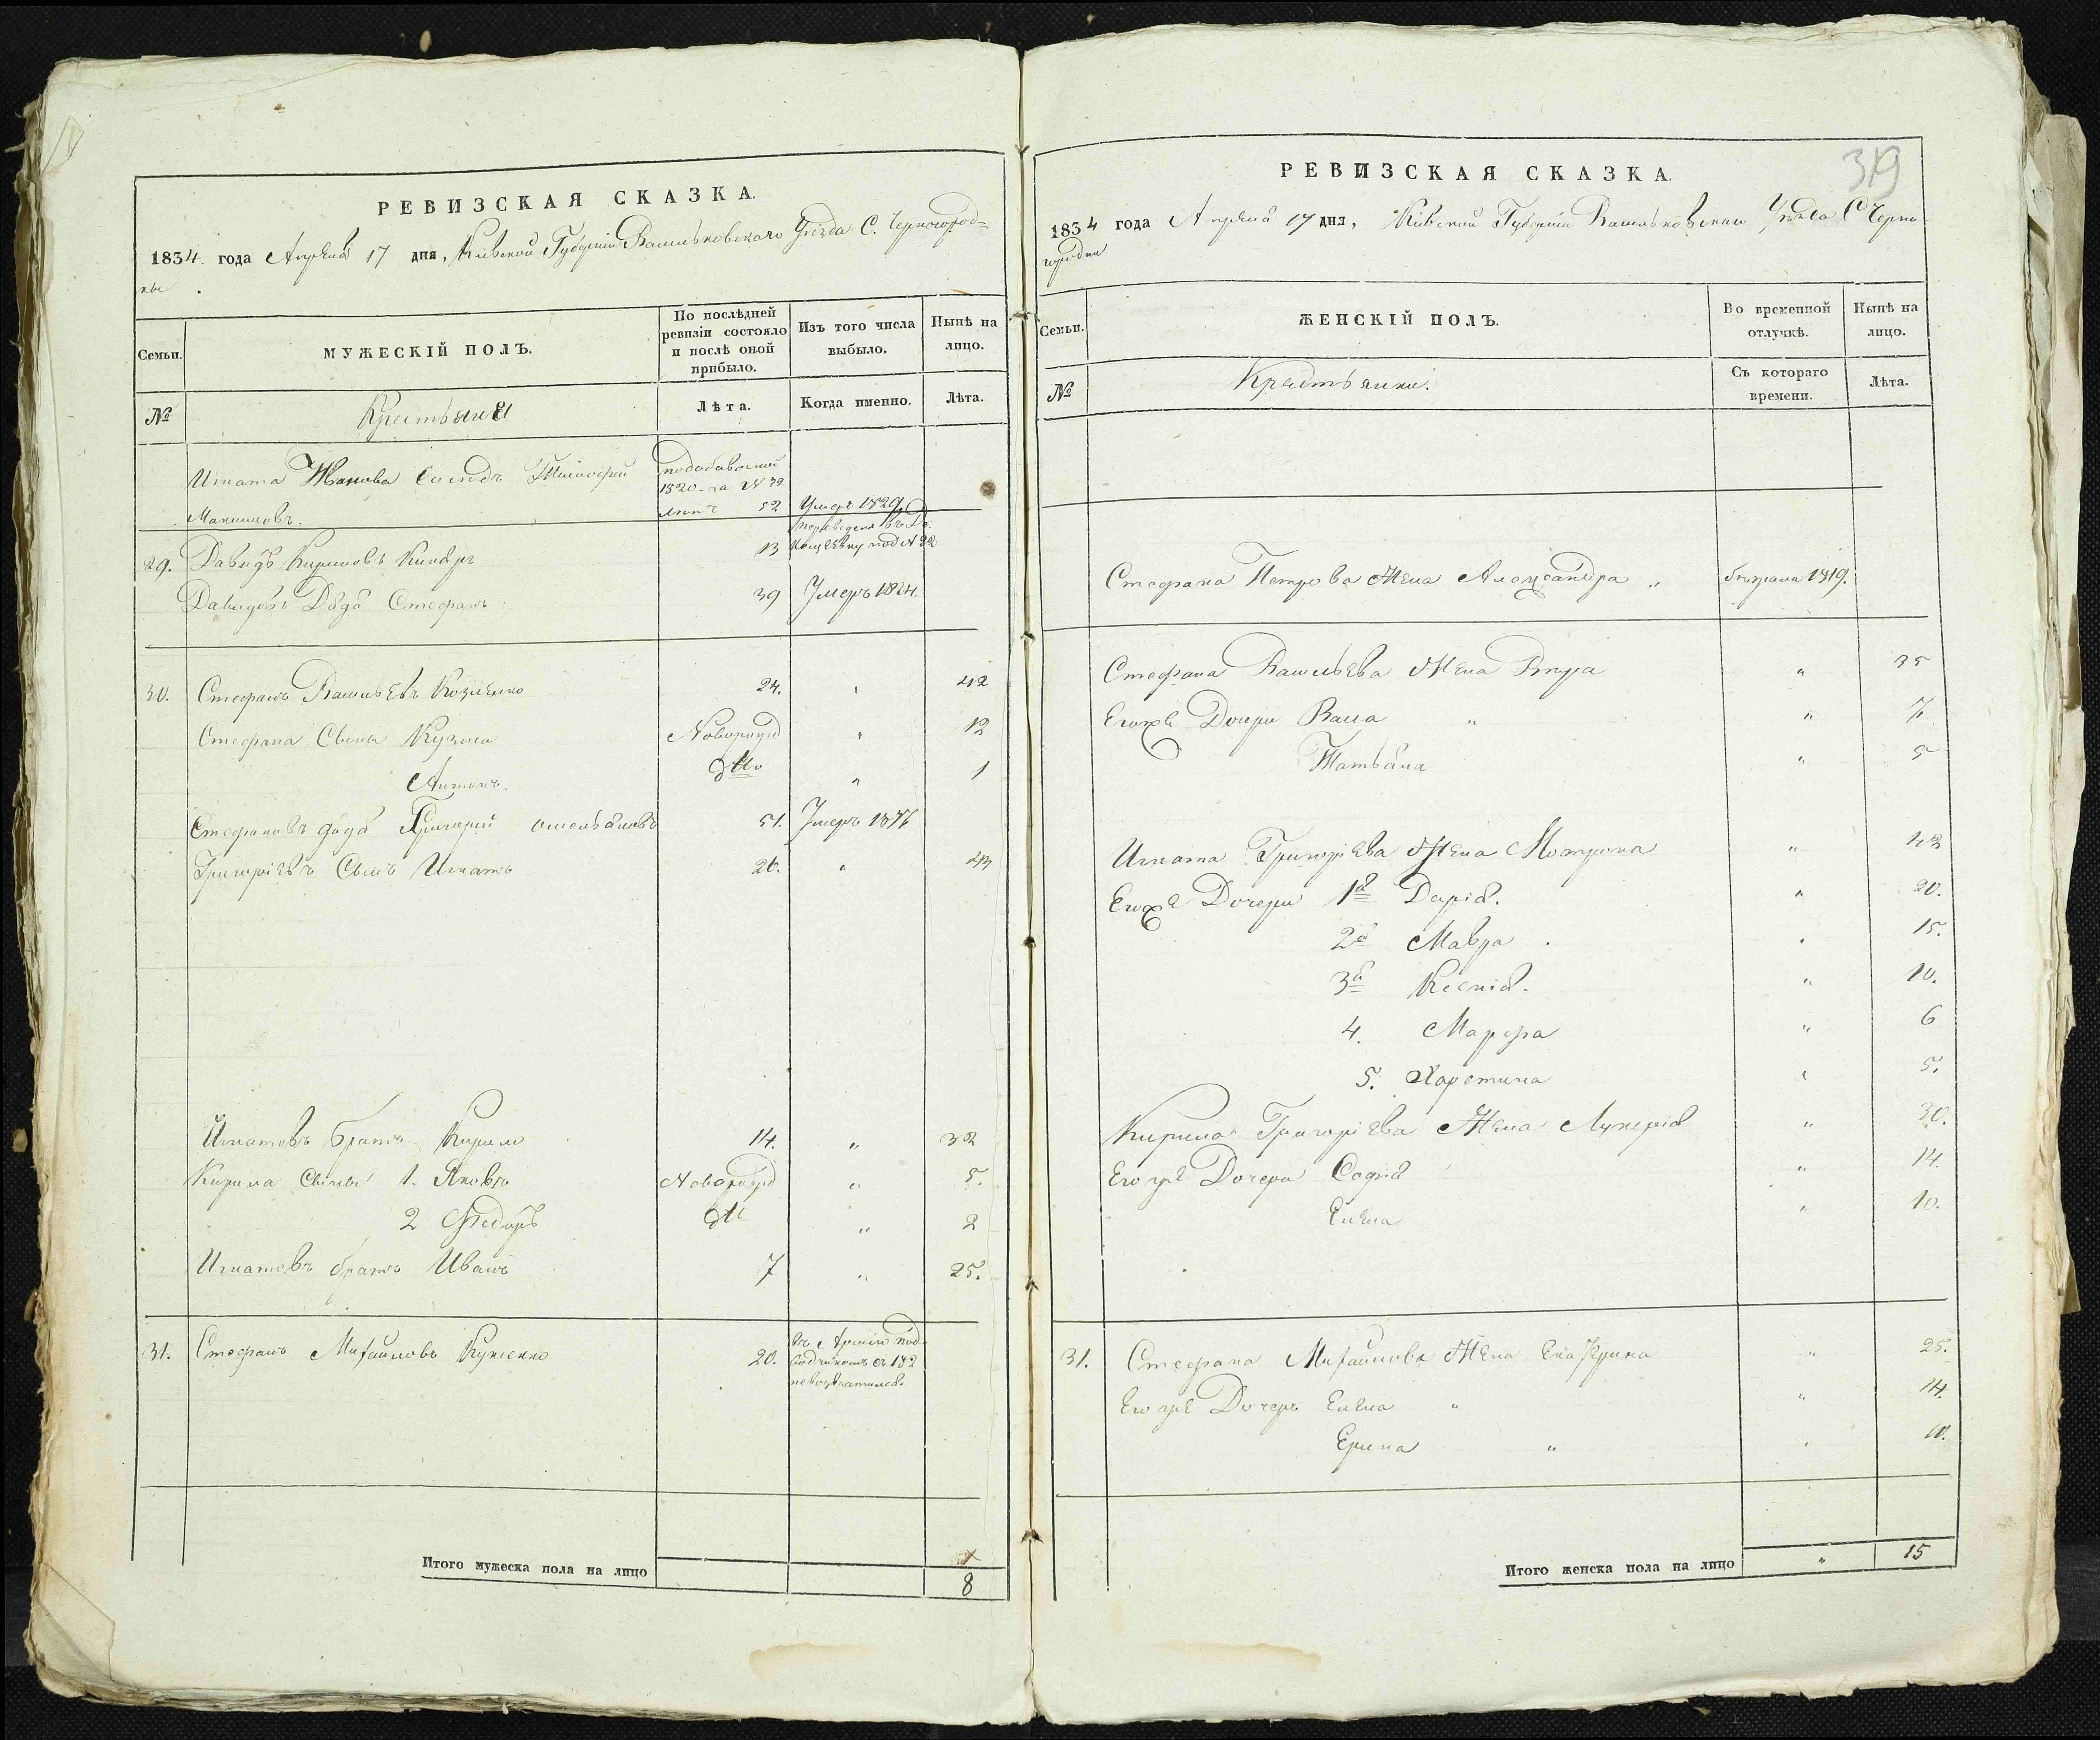 РЕВИЗСКАЯ СКАЗКА.
1834 года Апреля 17 дня, Кіевской Губерніи Васильковскаго Уезда С. Черногород=
ки
Семьи.
МУЖЕСКІЙ ПОЛЪ.
По послѣдней ревизіи состояло и послѣ оной прибыло.
Изъ того числа выбыло.
Нынѣ на лицо.
№
Крестьяне
Лѣта.
Когда именно.
Лѣта.
Игната Иванова Соседъ Тимофей подобавочной
1820 за N 72
Максимовъ. летъ 52 Умеръ 1829
переведенъ въ
29. Давидъ Кириловъ 13 под N 22
Давидовъ Дядя Стефанъ 39 Умеръ 1824.
30. Стефанъ Васильевъ Козленко 24. " 42
Стефана Сыны Кузма Новорожд " 12
Антонъ. дтто " 1
Стефановъ дядя Григорій Омельяновъ 51. Умеръ 18
Григоріевъ Сынъ Игнатъ 26. " 43
Игнатовъ братъ Кирило 14. " 32
Кирила Сыны 1. Яковъ Новорожд " 5.
2 Федоръ дтто " 2
Игнатовъ братъ Иванъ 7 " 25.
31. Стефанъ Михайловъ 20. въ Армію под
водчикомъ съ 182
невозвратился.
Итого мужеска пола на лицо 8
319
РЕВИЗСКАЯ СКАЗКА.
1834 года Апреля 17 дня, Кіевской Губерніи Васильковскаго Уезда С Черно
городки
Семьи.
ЖЕНСКІЙ ПОЛЪ.
Во временной отлучкѣ.
Нынѣ на лицо.
№
Крестьянки.
Съ котораго времени.
Лѣта.
Стефана Петрова Жена Александра " бежала 1819.
Стефана Васильева Жена Вера " 35
Егоже Дочери Васа " " 7
Татьяна " 5
Игната Григоріева Жена Мотрона " 43
Егоже Дочери 1я Дарія. " 20.
2я Мавра . " 15.
3я Ксенія. " 10.
4. Марфа " 6
5. Харетина " 5.
Кирила Григоріева Жена Лукерія " 30.
Его же Дочери Софія " 14.
Елена " 10.
31. Стефана Михайлова Жена Екатерина " 25.
Его же Дочерь Елена " " 14.
Ерина " " 10.
Итого женска пола на лицо " 15